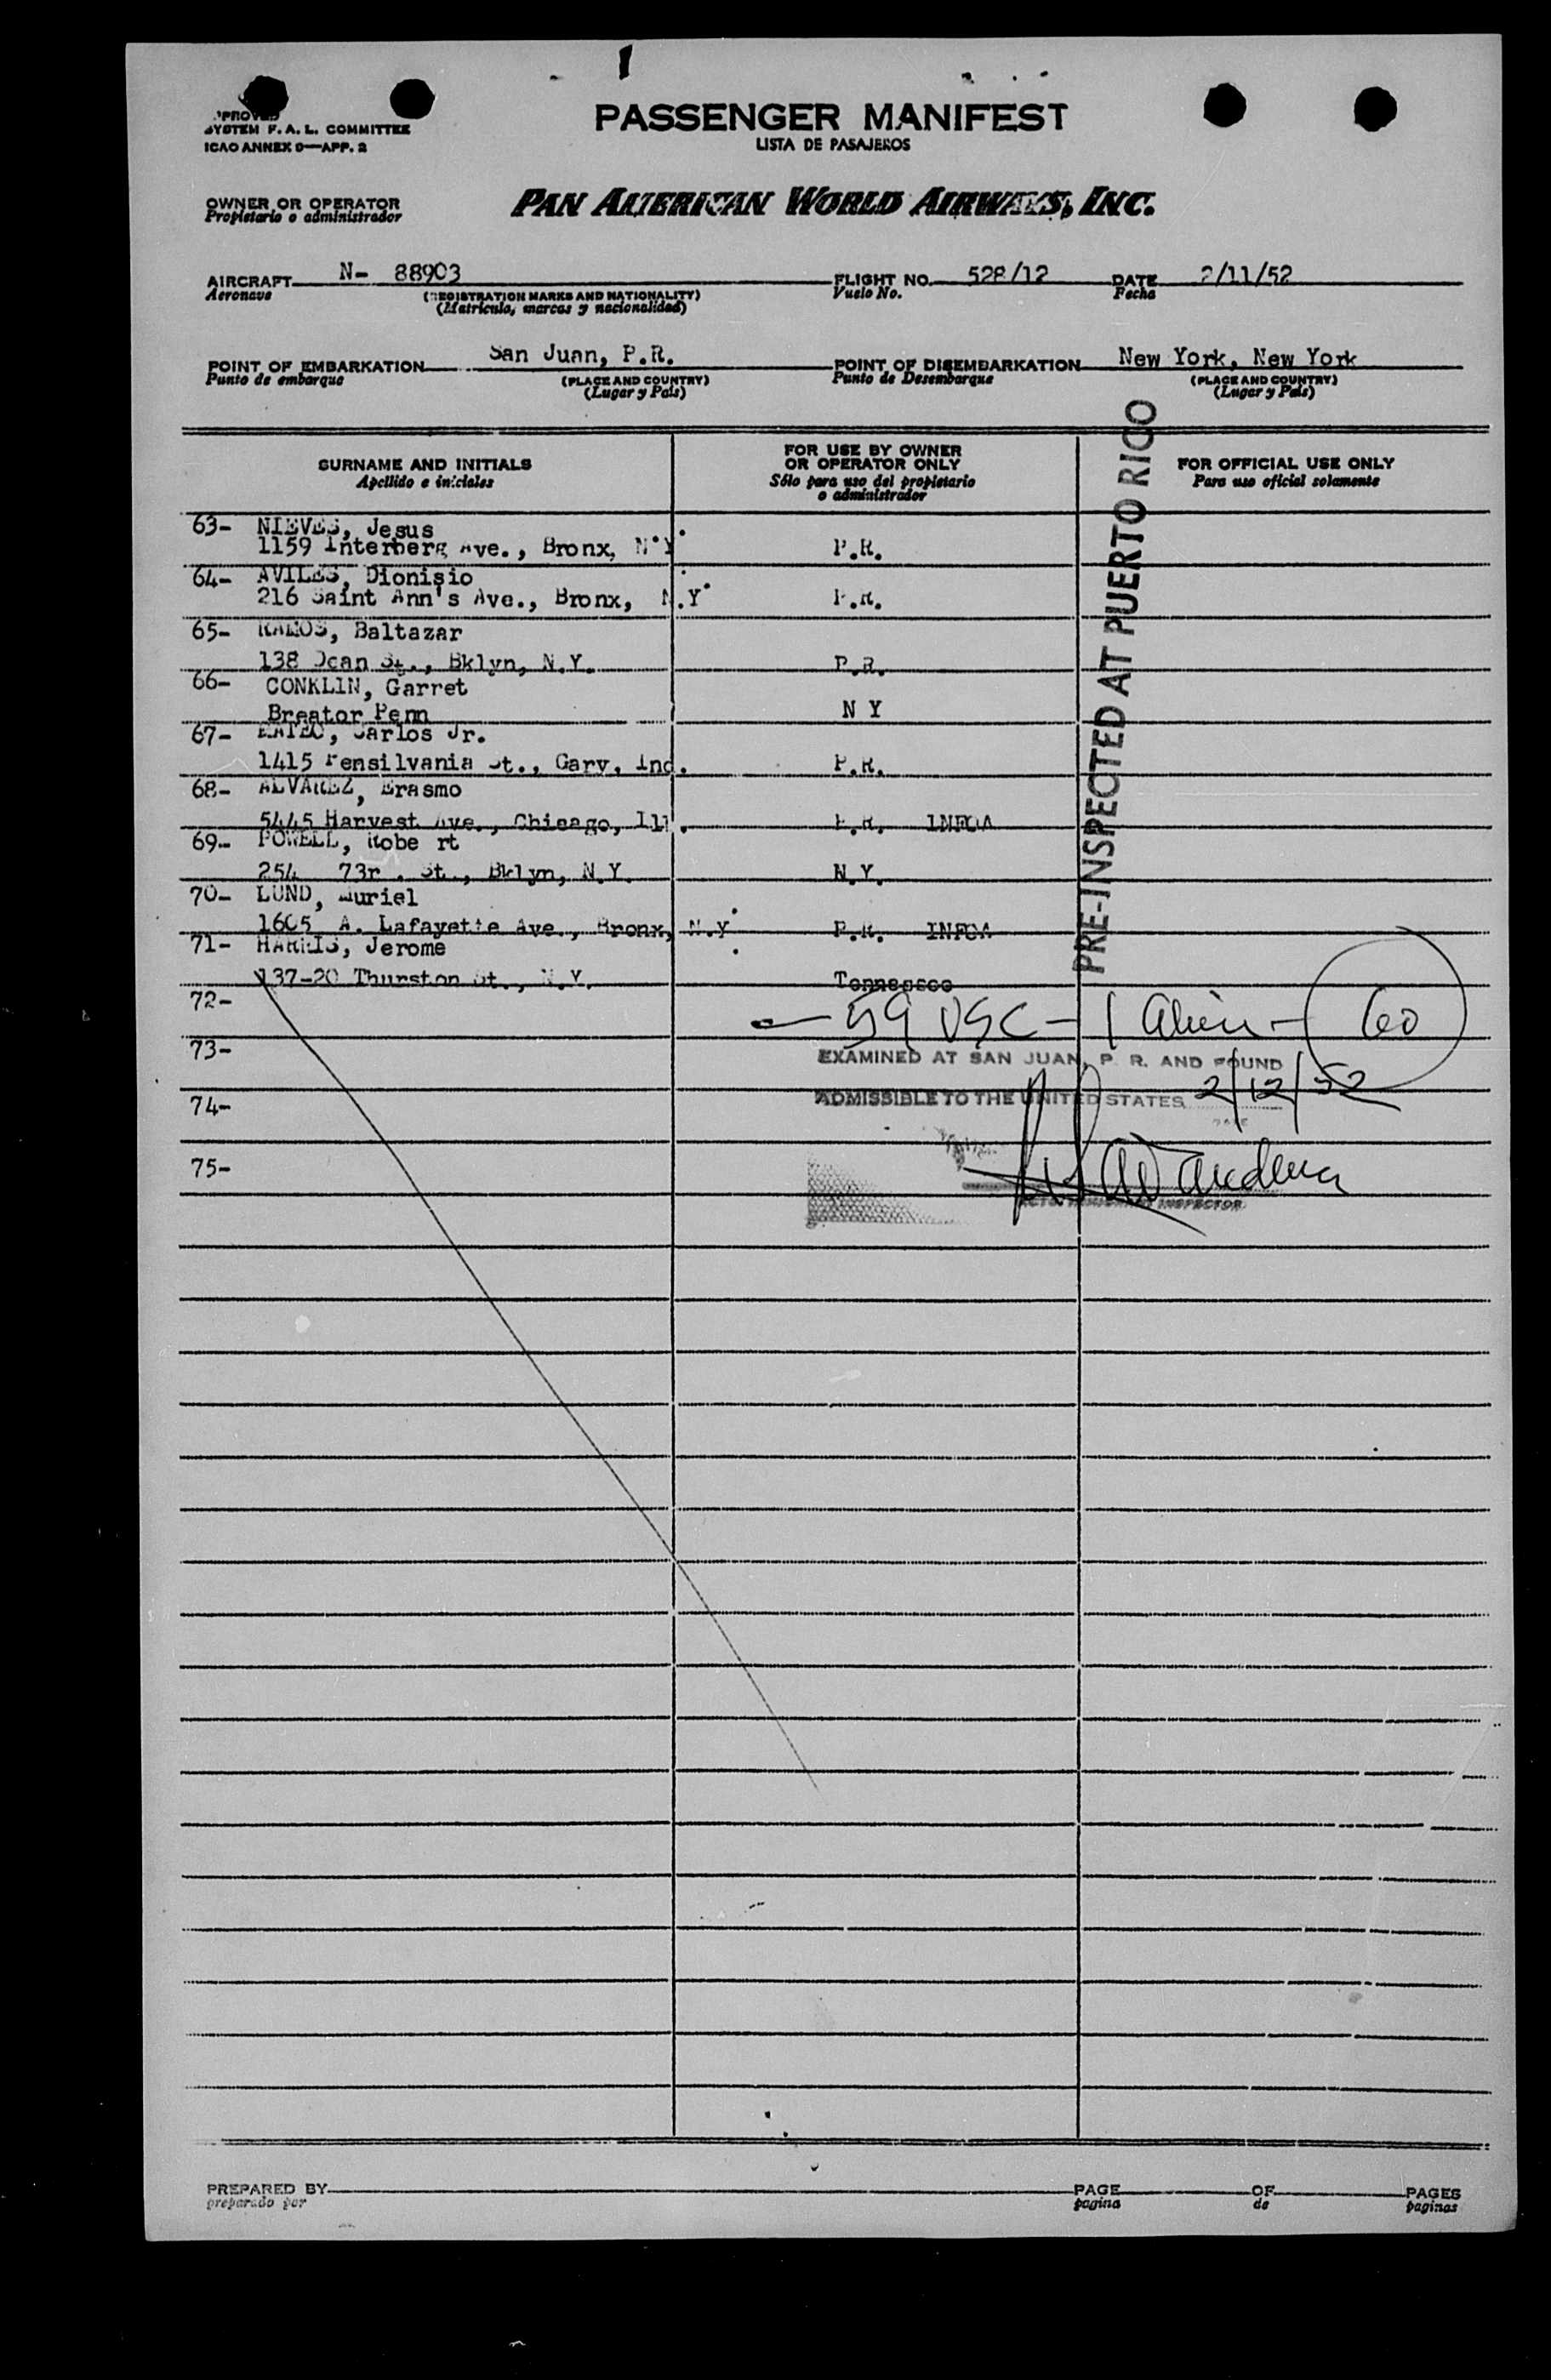 SYSTEM F. A. L. COMMITTEE
ICAO ANNEX 9—APP. 2
PASSENGER MANIFEST
LISTA DE PASAJEROS
OWNER OR OPERATOR
Propietario o administrador
PAN AMERICAN WORLD AIRWAYS, INC.
AIRCRAFT N- 88903
Aeronave
(REGISTRATION MARKS AND NATIONALITY)
(Matrícula, marcas y nacionalidad)
FLIGHT NO. 528/12
Vuelo No.
DATE 2/11/52
Fecha
POINT OF EMBARKATION San Juan, P.R.
Punto de embarque
(PLACE AND COUNTRY)
(Lugar y País)
POINT OF DISEMBARKATION New York, New York
Punto de Desembarque
(PLACE AND COUNTRY)
(Lugar y País)
SURNAME AND INITIALS
Apellido e iniciales
FOR USE BY OWNER
OR OPERATOR ONLY
Sólo para uso del propietario
o administrador
FOR OFFICIAL USE ONLY
Para uso oficial solamente
PRE-INSPECTED AT PUERTO RICO
63- NIEVES, Jesus
1159 Interberg Ave., Bronx, N.Y. P.R.
64- AVILES, Dionisio
216 Saint Ann's Ave., Bronx, N.Y. P.R.
65- RAMOS, Baltazar
138 Dean St., Bklyn, N.Y. P.R.
66- CONKLIN, Garret
Breator Penn N Y
67- MATEO, Carlos Jr.
1415 Pensilvania St., Gary, Ind. P.R.
68- ALVAREZ, Erasmo
5445 Harvest Ave., Chicago, Ill. P.R. INFOA
69- POWELL, Robe rt
254 73r . St., Bklyn, N.Y. N.Y.
70- LUND, Muriel
1605 A. Lafayette Ave., Bronx, N.Y. P.R. INFOA
71- HARRIS, Jerome
137-20 Thurston St., N.Y. Tennessee
72-
59 USC - 1 Alien - 60
73-
EXAMINED AT SAN JUAN, P. R. AND FOUND
74-
ADMISSIBLE TO THE UNITED STATES 2/12/52
DATE
75-
INSPECTOR
PREPARED BY
preparado por
PAGE OF PAGES
pagina de paginas